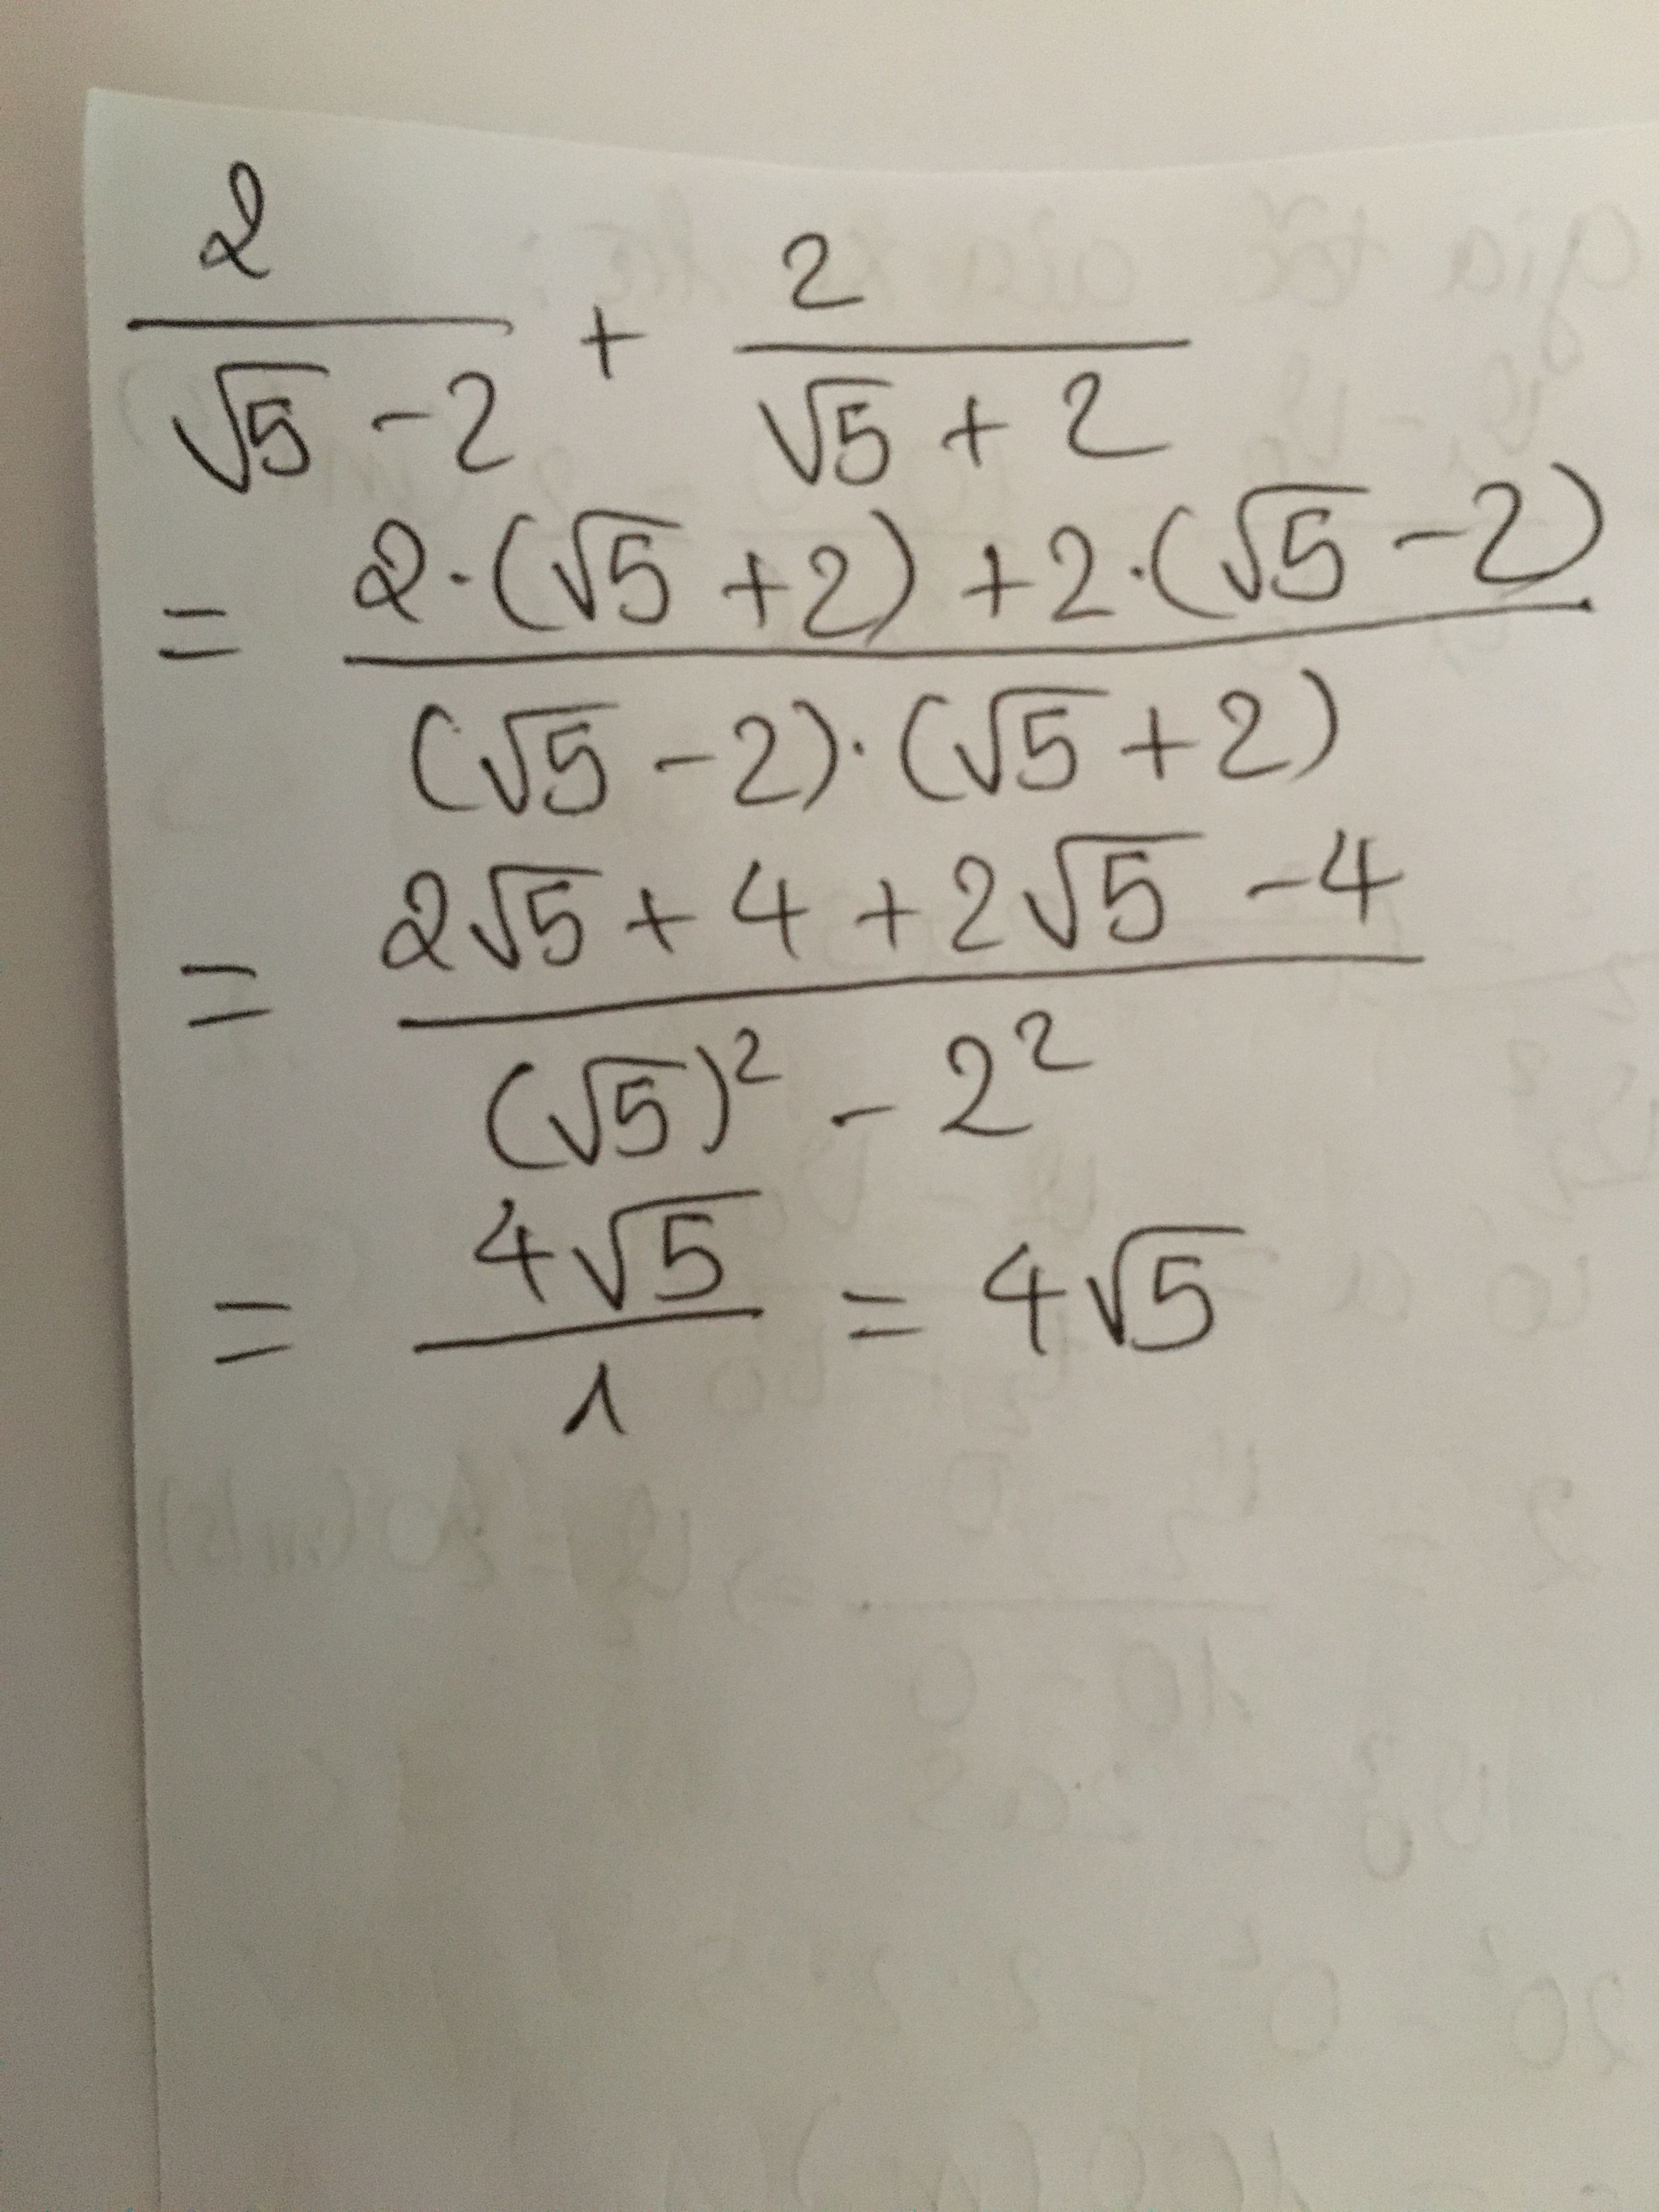 2/(√5 - 2) + 2/(√5 + 2)
= (2·(√5 + 2) + 2·(√5 - 2))/((√5 - 2)·(√5 + 2))
= (2√5 + 4 + 2√5 - 4)/((√5)² - 2²)
= 4√5/1 = 4√5